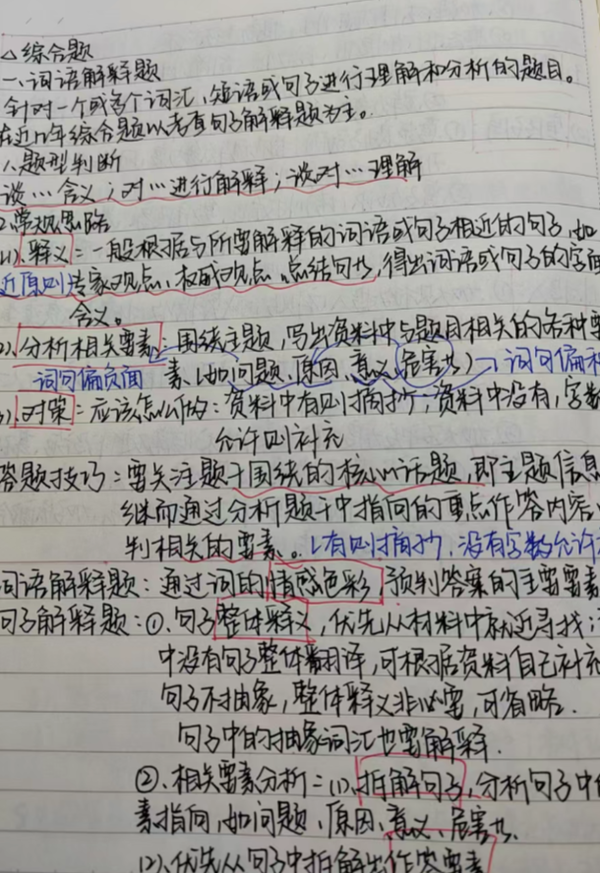 △综合题
一、词语解释题
针对一个或多个词汇、短语或句子进行理解和分析的题目。
在近几年综合题以考查句子解释题为主。
1、题型判断
谈…含义；对…进行解释；谈对…理解
2.常规思路
(1).释义：一般根据与所要解释的词语或句子相近的句子，如
近原则 专家观点、权威观点、总结句书，得出词语或句子的字面
含义。
2).分析相关要素：围绕主题，写出资料中与题目相关的各种要
词句偏负面 素（如问题、原因、意义、危害书）→词句偏
3).对策：应该怎么做：资料中有则摘抄；资料中没有，字数
允许则补充
答题技巧：要关注题干围绕的核心话题，即主题信息
继而通过分析题干中指向的重点作答内容，
判相关的要素。（有则摘抄，没有字数允许
词语解释题：通过词的情感色彩，预判答案的主要要素
句子解释题：①.句子整体释义，优先从材料中就近寻找；
中没有句子整体翻译，可根据资料自己补充
句子不抽象，整体释义非必要，可省略.
句子中的抽象词汇也要解释.
②.相关要素分析：(1).拍解句子，分析句子中
素指向，如问题、原因、意义、危害书.
(2).优先从句子中拍解出作答要素